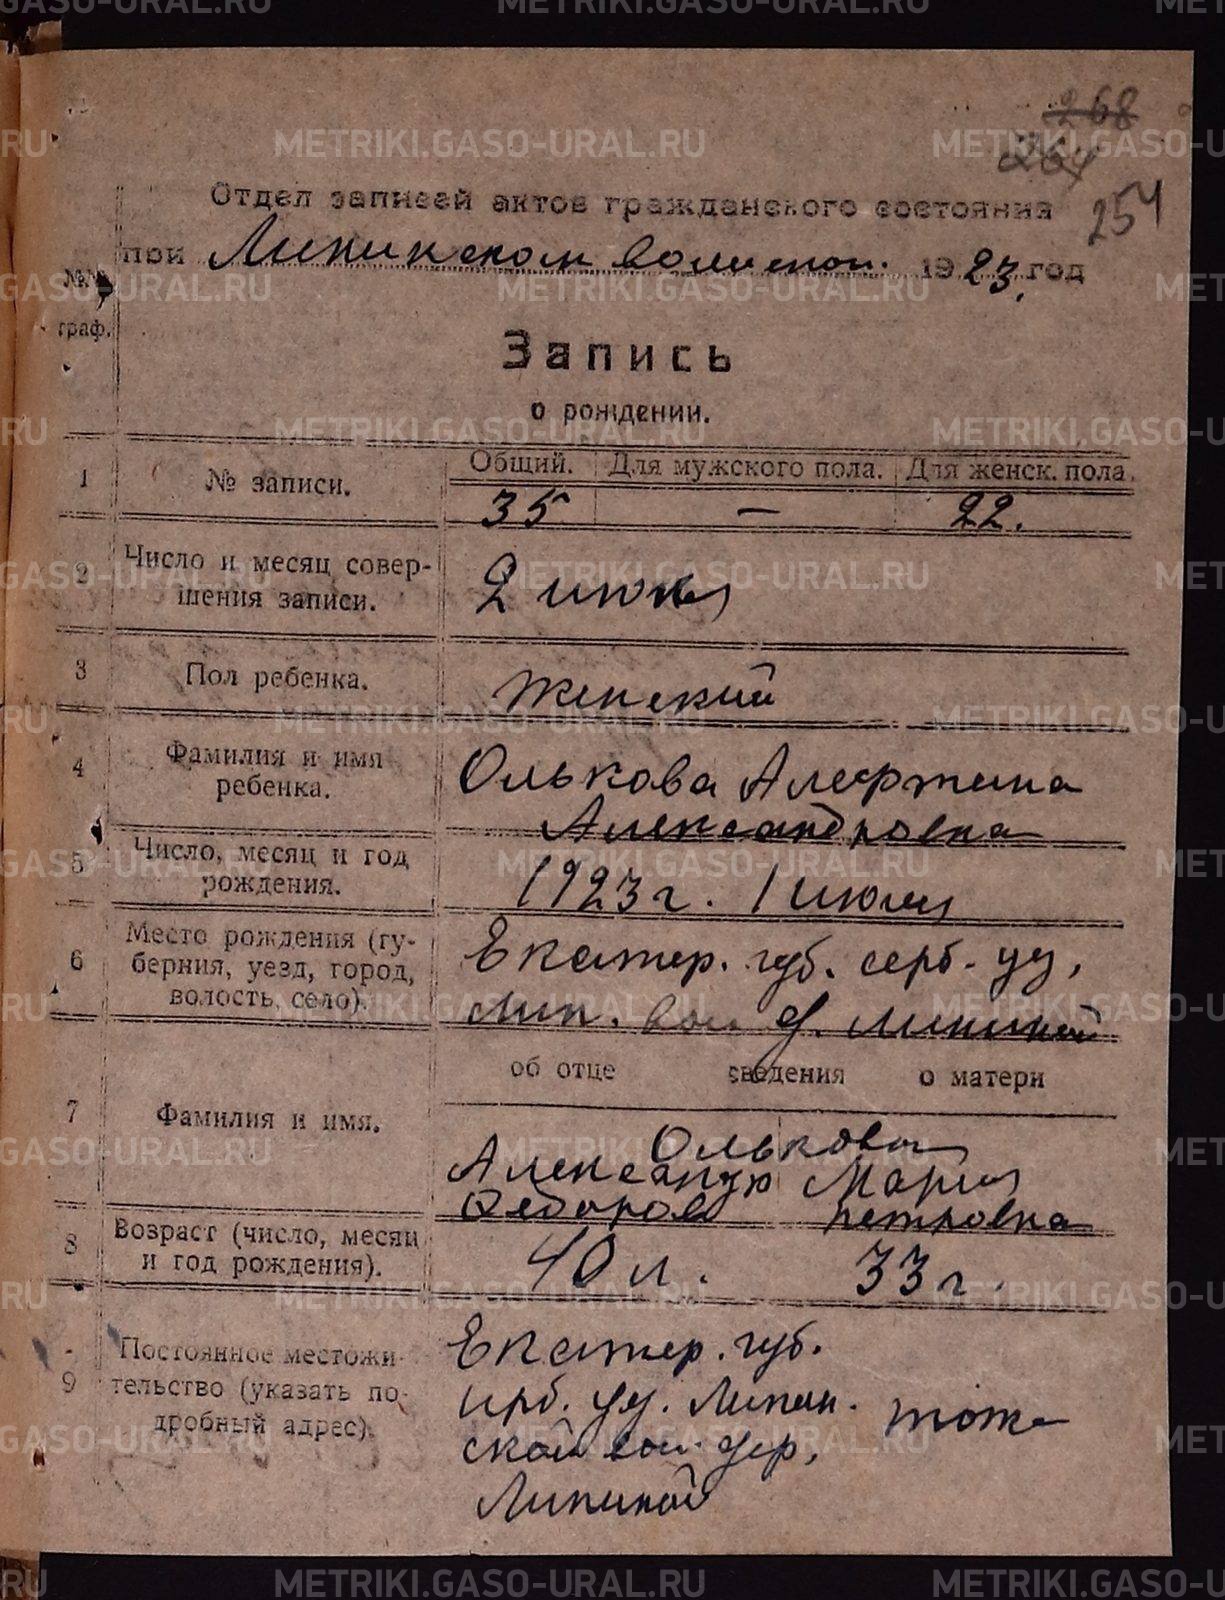 268
264
254
Отдел записей актов гражданского состояния
при Липинском волиспол. 1923 год
№№ граф.
Запись
о рождении.
1 № записи. Общий. Для мужского пола. Для женск. пола.
35 — 22.
2 Число и месяц совер-
шения записи. 2 июля
3 Пол ребенка. Женский
4 Фамилия и имя
ребенка. Олькова Алефтина
Александровна
5 Число, месяц и год
рождения. 1923 г. 1 июля
6 Место рождения (гу-
берния, уезд, город,
волость, село). Екатер. губ. ирб. уу,
Лип. вол д. Липиной
об отце сведения о матери
7 Фамилия и имя. Ольковы
Александр Мария
Федоров Петровна
8 Возраст (число, месяц
и год рождения). 40 л. 33 г.
9 Постоянное местожи-
тельство (указать по-
дробный адрес). Екатер. губ.
ирб. уу. Липин- тоже
ской вол. дер,
Липиной
METRIKI.GASO-URAL.RU